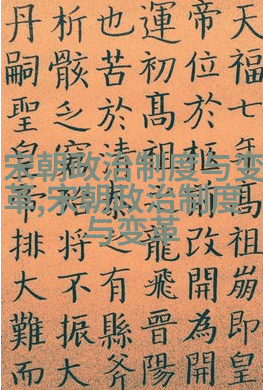 天福七年高祖崩即皇
帝位於柩前改開為開
運初高祖龍飛晉陽
也苦於清泰之有縣斧
析骸乏窮將不振大
丹嗣聖皇帝排大難而
宋朝政治制度与变
革,宋朝政治制度
与变革